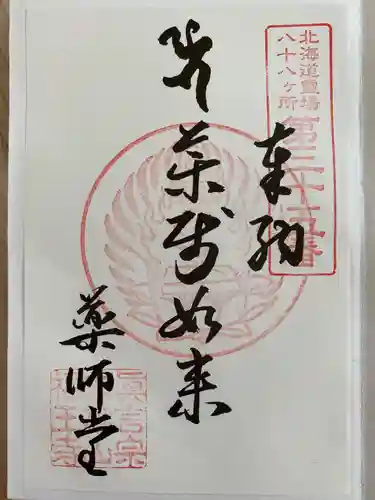 北海道霊場
八十八ヶ所
第三十五番
奉拝
薬師如来
薬師堂
真言宗